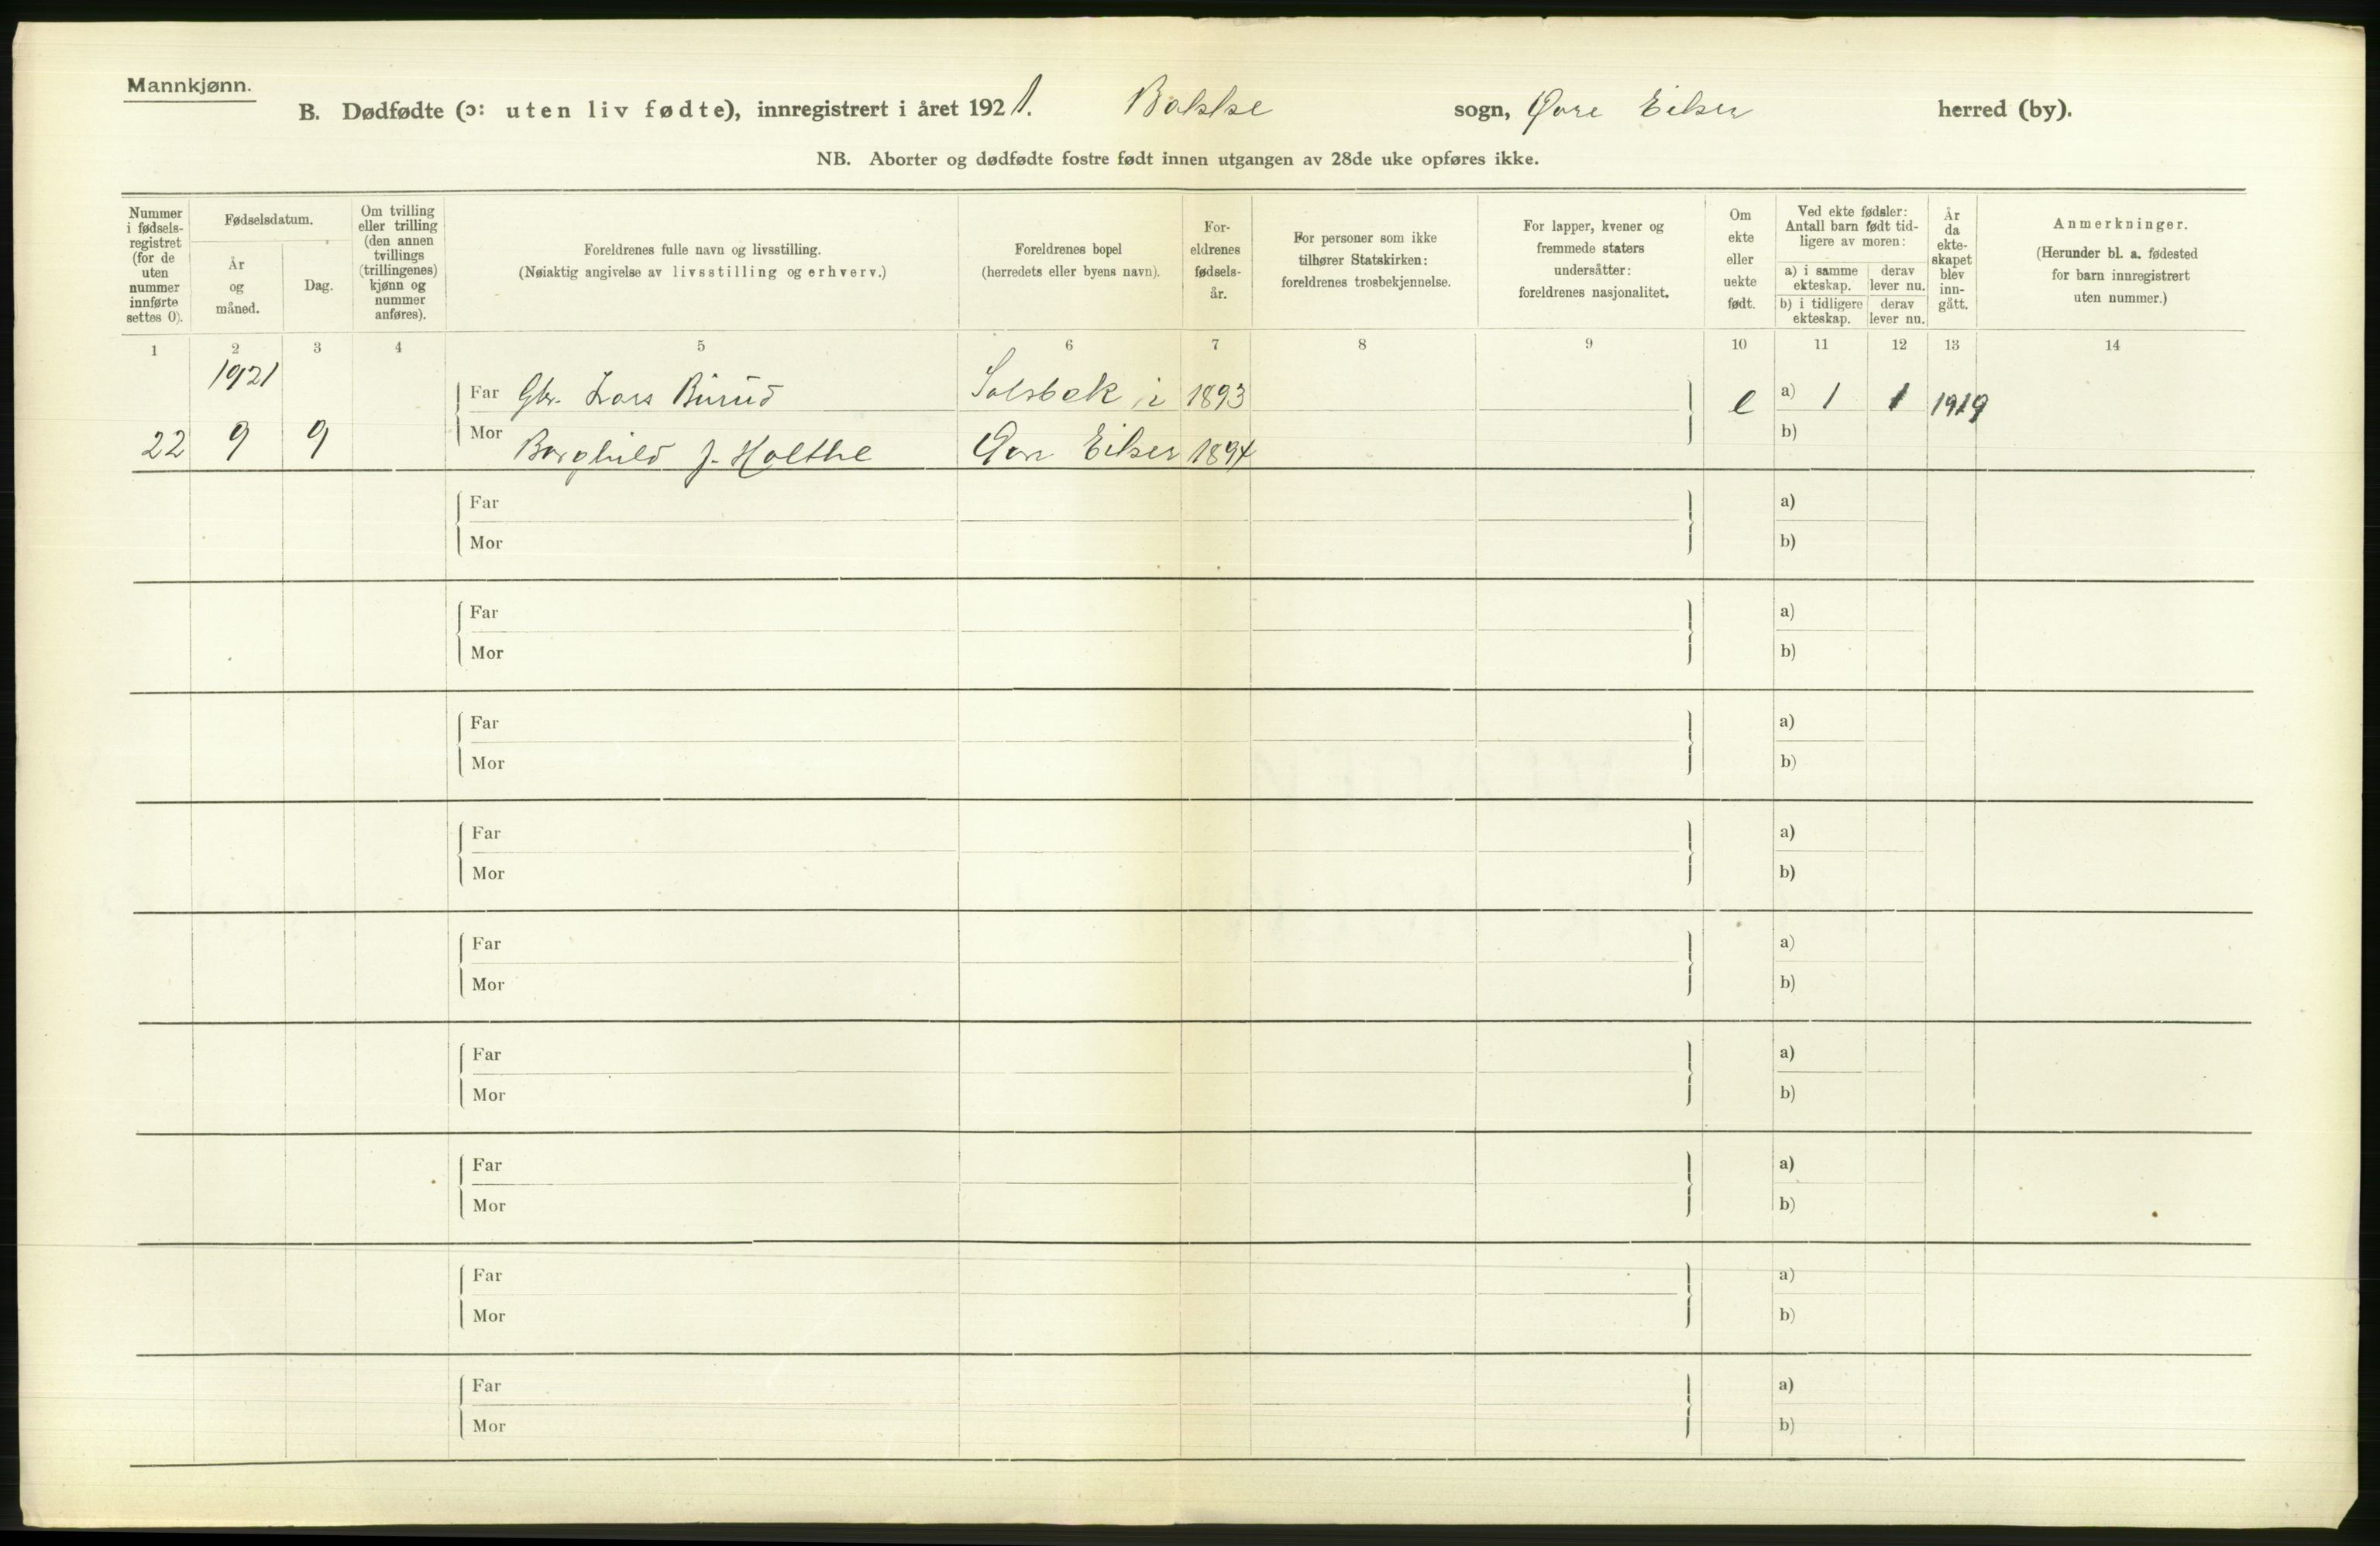 Mannkjønn.
B. Dødfødte (ɔ: uten liv fødte), innregistrert i året 1921. Bakke sogn, Øvre Eiker herred (by).
NB. Aborter og dødfødte fostre født innen utgangen av 28de uke opføres ikke.
Nummer i fødsels-registret (for de uten nummer innførte settes 0).
Fødselsdatum.
År og måned.
Dag.
Om tvilling eller trilling (den annen tvillings (trillingenes) kjønn og nummer anføres).
Foreldrenes fulle navn og livsstilling.
(Nøiaktig angivelse av livsstilling og erhverv.)
Foreldrenes bopel
(herredets eller byens navn).
For-eldrenes fødsels-år.
For personer som ikke tilhører Statskirken: foreldrenes trosbekjennelse.
For lapper, kvener og fremmede staters undersåtter: foreldrenes nasjonalitet.
Om ekte eller uekte født.
Ved ekte fødsler: Antall barn født tid-ligere av moren:
a) i samme ekteskap.
derav lever nu.
b) i tidligere ekteskap.
derav lever nu.
År da ekte-skapet blev inn-gått.
Anmerkninger.
(Herunder bl. a. fødested for barn innregistrert uten nummer.)
1 2 3 4 5 6 7 8 9 10 11 12 13 14
1921
Far Gbr. Lars Burud Solsbæk i 1893 e a) 1 1 1919
22 9 9 Mor Borghild J. Holthe Øvre Eiker 1894 b)
Far a)
Mor b)
Far a)
Mor b)
Far a)
Mor b)
Far a)
Mor b)
Far a)
Mor b)
Far a)
Mor b)
Far a)
Mor b)
Far a)
Mor b)
Far a)
Mor b)